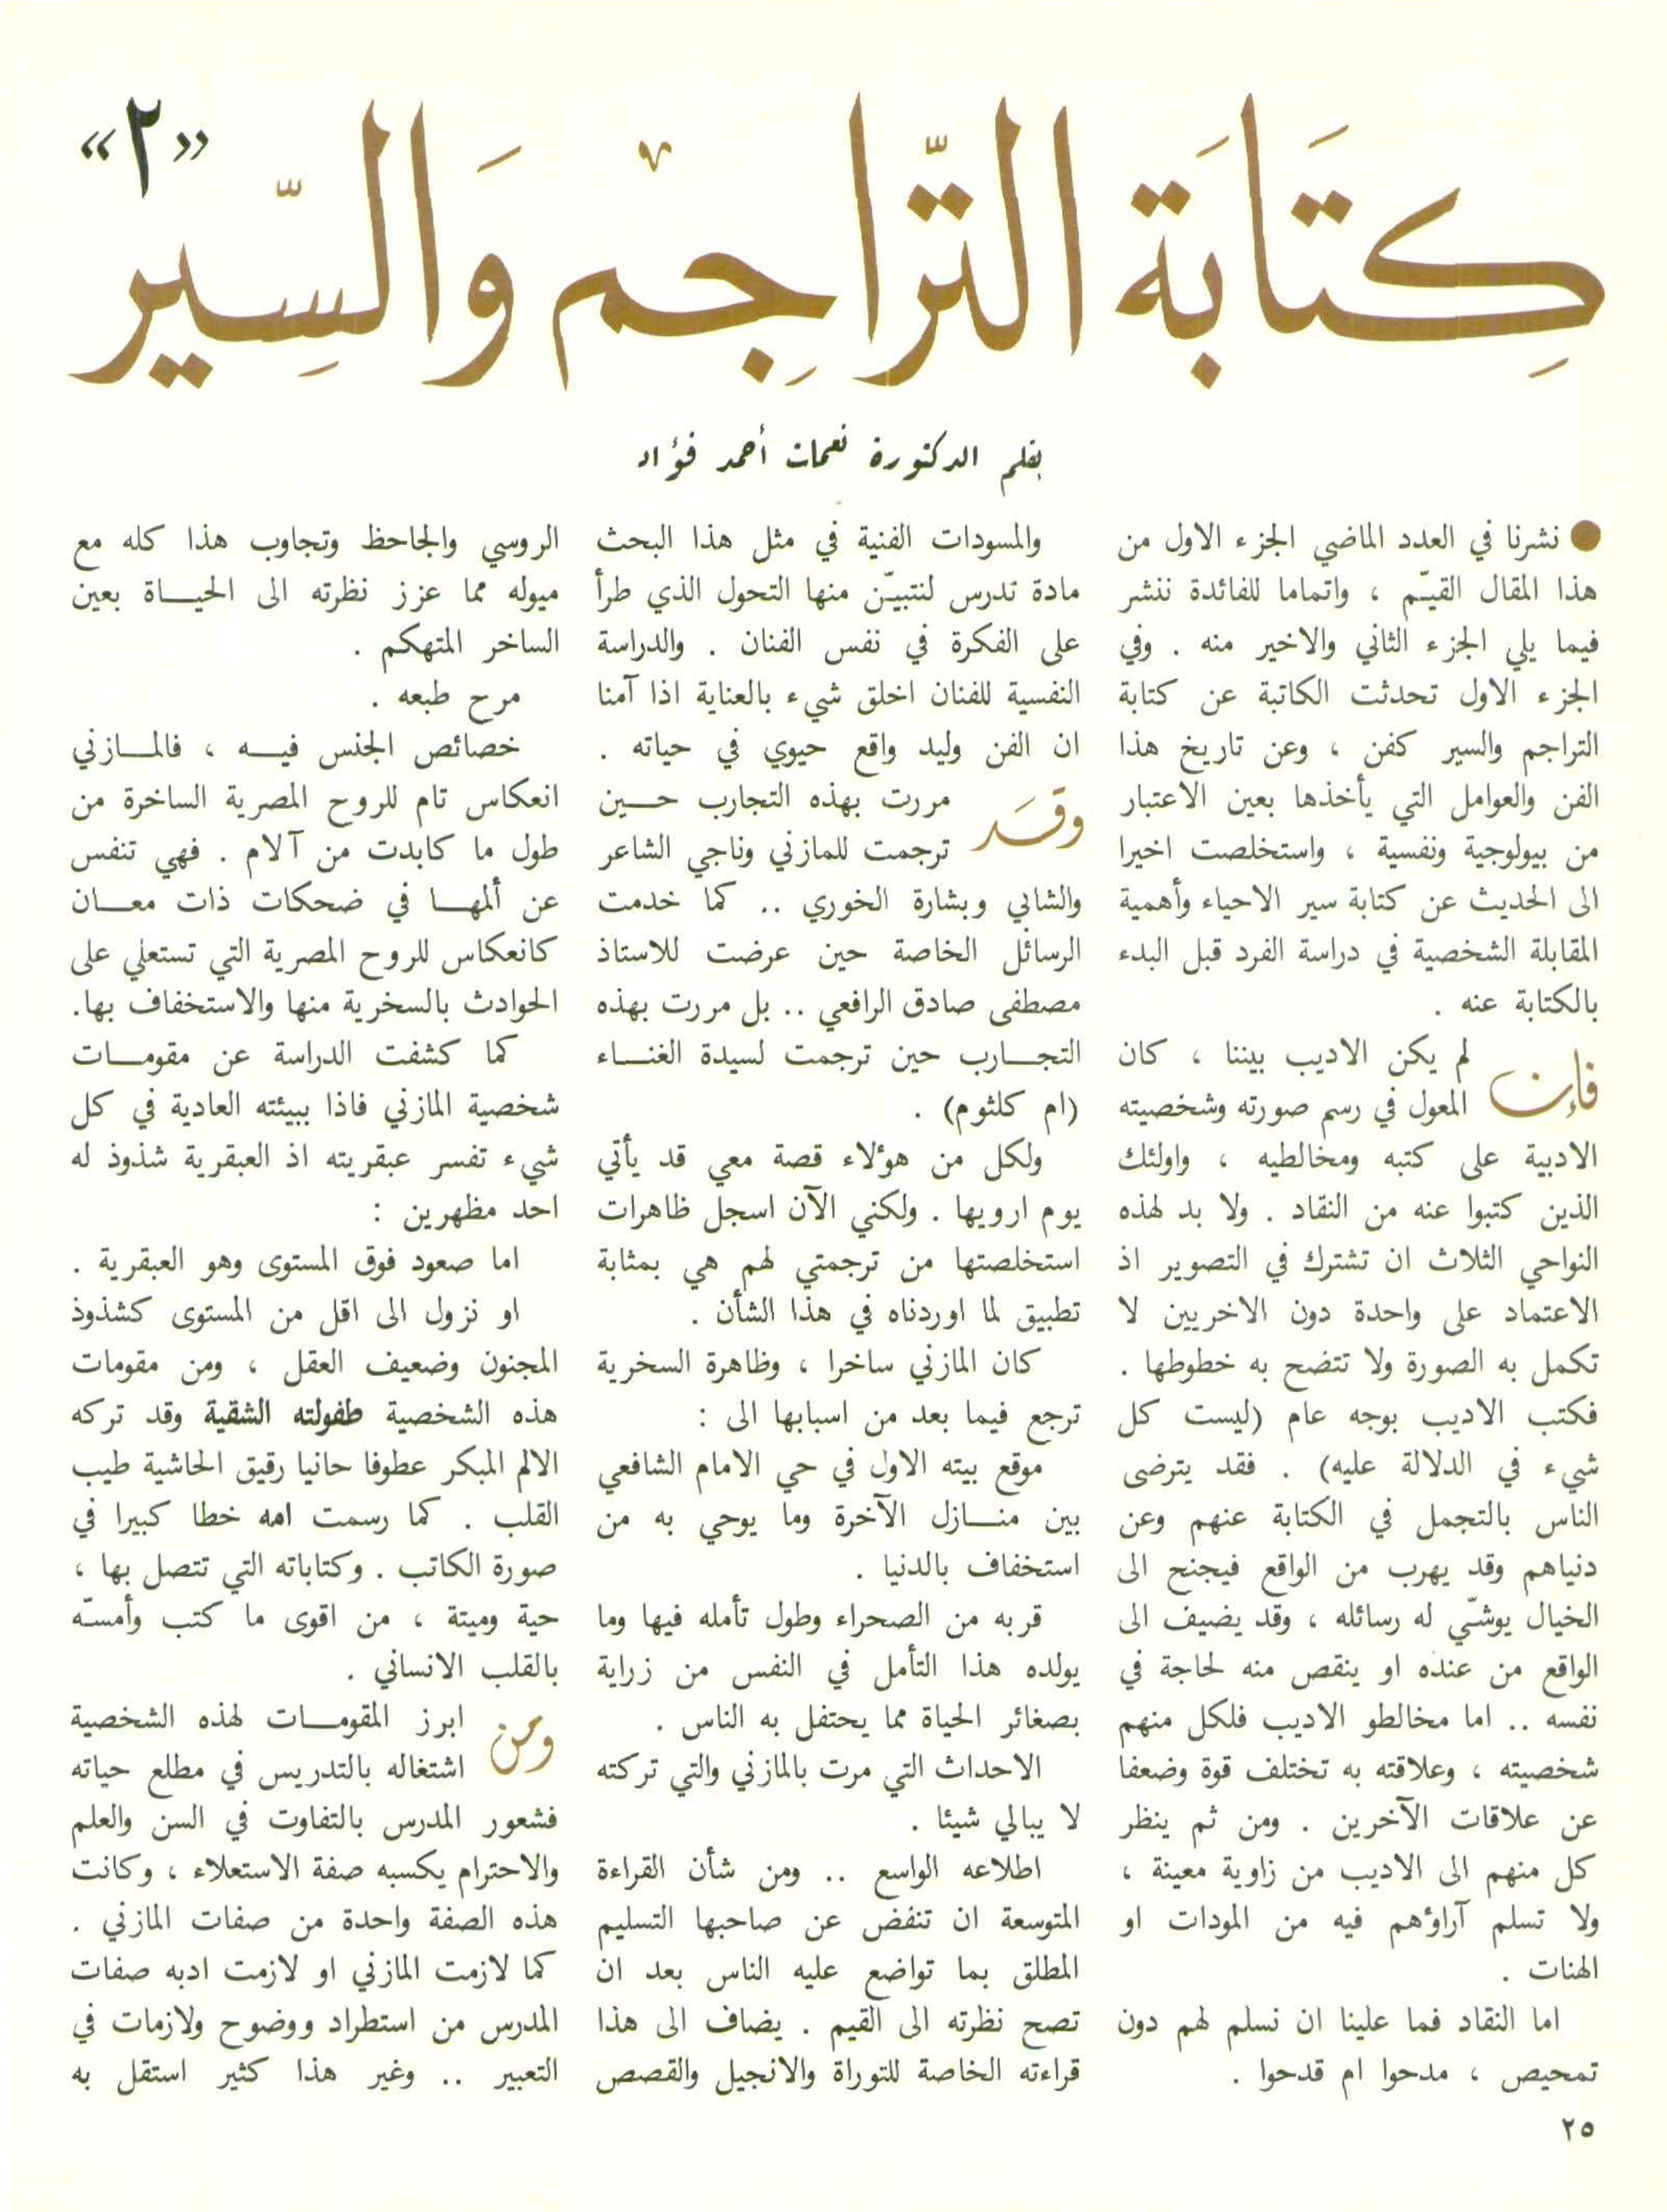 كِتَابَة التَّرَاجِم وَالسِّير «٢»
بقلم الدكتورة نعمات أحمد فؤاد
● نشرنا في العدد الماضي الجزء الاول من
هذا المقال القيّم ، واتماما للفائدة ننشر
فيما يلي الجزء الثاني والاخير منه . وفي
الجزء الاول تحدثت الكاتبة عن كتابة
التراجم والسير كفن ، وعن تاريخ هذا
الفن والعوامل التي يأخذها بعين الاعتبار
من بيولوجية ونفسية ، واستخلصت اخيرا
الى الحديث عن كتابة سير الاحياء وأهمية
المقابلة الشخصية في دراسة الفرد قبل البدء
بالكتابة عنه .
فإن لم يكن الاديب بيننا ، كان
المعول في رسم صورته وشخصيته
الادبية على كتبه ومخالطيه ، واولئك
الذين كتبوا عنه من النقاد . ولا بد لهذه
النواحي الثلاث ان تشترك في التصوير اذ
الاعتماد على واحدة دون الاخريين لا
تكمل به الصورة ولا تتضح به خطوطها .
فكتب الاديب بوجه عام (ليست كل
شيء في الدلالة عليه) . فقد يترضى
الناس بالتجمل في الكتابة عنهم وعن
دنياهم وقد يهرب من الواقع فيجنح الى
الخيال يوشّي له رسائله ، وقد يضيف الى
الواقع من عنده او ينقص منه لحاجة في
نفسه .. اما مخالطو الاديب فلكل منهم
شخصيته ، وعلاقته به تختلف قوة وضعفا
عن علاقات الآخرين . ومن ثم ينظر
كل منهم الى الاديب من زاوية معينة ،
ولا تسلم آراؤهم فيه من المودات او
الهنات .
اما النقاد فما علينا ان نسلم لهم دون
تمحيص ، مدحوا ام قدحوا .
والمسودات الفنية في مثل هذا البحث
مادة تدرس لنتبيّن منها التحول الذي طرأ
على الفكرة في نفس الفنان . والدراسة
النفسية للفنان اخلق شيء بالعناية اذا آمنا
ان الفن وليد واقع حيوي في حياته .
وقَد مررت بهذه التجارب حين
ترجمت للمازني وناجي الشاعر
والشابي وبشارة الخوري .. كما خدمت
الرسائل الخاصة حين عرضت للاستاذ
مصطفى صادق الرافعي .. بل مررت بهذه
التجارب حين ترجمت لسيدة الغناء
(ام كلثوم) .
ولكل من هؤلاء قصة معي قد يأتي
يوم ارويها . ولكني الآن اسجل ظاهرات
استخلصتها من ترجمتي لهم هي بمثابة
تطبيق لما اوردناه في هذا الشأن .
كان المازني ساخرا ، وظاهرة السخرية
ترجع فيما بعد من اسبابها الى :
موقع بيته الاول في حي الامام الشافعي
بين منازل الآخرة وما يوحي به من
استخفاف بالدنيا .
قربه من الصحراء وطول تأمله فيها وما
يولده هذا التأمل في النفس من زراية
بصغائر الحياة مما يحتفل به الناس .
الاحداث التي مرت بالمازني والتي تركته
لا يبالي شيئا .
اطلاعه الواسع .. ومن شأن القراءة
المتوسعة ان تنفض عن صاحبها التسليم
المطلق بما تواضع عليه الناس بعد ان
تصح نظرته الى القيم . يضاف الى هذا
قراءته الخاصة للتوراة والانجيل والقصص
الروسي والجاحظ وتجاوب هذا كله مع
ميوله مما عزز نظرته الى الحياة بعين
الساخر المتهكم .
مرح طبعه .
خصائص الجنس فيه ، فالمازني
انعكاس تام للروح المصرية الساخرة من
طول ما كابدت من آلام . فهي تنفس
عن ألمها في ضحكات ذات معان
كانعكاس للروح المصرية التي تستعلي على
الحوادث بالسخرية منها والاستخفاف بها.
كما كشفت الدراسة عن مقومات
شخصية المازني فاذا ببيئته العادية في كل
شيء تفسر عبقريته اذ العبقرية شذوذ له
احد مظهرين :
اما صعود فوق المستوى وهو العبقرية .
او نزول الى اقل من المستوى كشذوذ
المجنون وضعيف العقل ، ومن مقومات
هذه الشخصية طفولته الشقية وقد تركه
الالم المبكر عطوفا حانيا رقيق الحاشية طيب
القلب . كما رسمت امه خطا كبيرا في
صورة الكاتب . وكتاباته التي تتصل بها ،
حية وميتة ، من اقوى ما كتب وأمسّه
بالقلب الانساني .
ومن ابرز المقومات لهذه الشخصية
اشتغاله بالتدريس في مطلع حياته
فشعور المدرس بالتفاوت في السن والعلم
والاحترام يكسبه صفة الاستعلاء ، وكانت
هذه الصفة واحدة من صفات المازني .
كما لازمت المازني او لازمت ادبه صفات
المدرس من استطراد ووضوح ولازمات في
التعبير .. وغير هذا كثير استقل به
٢٥